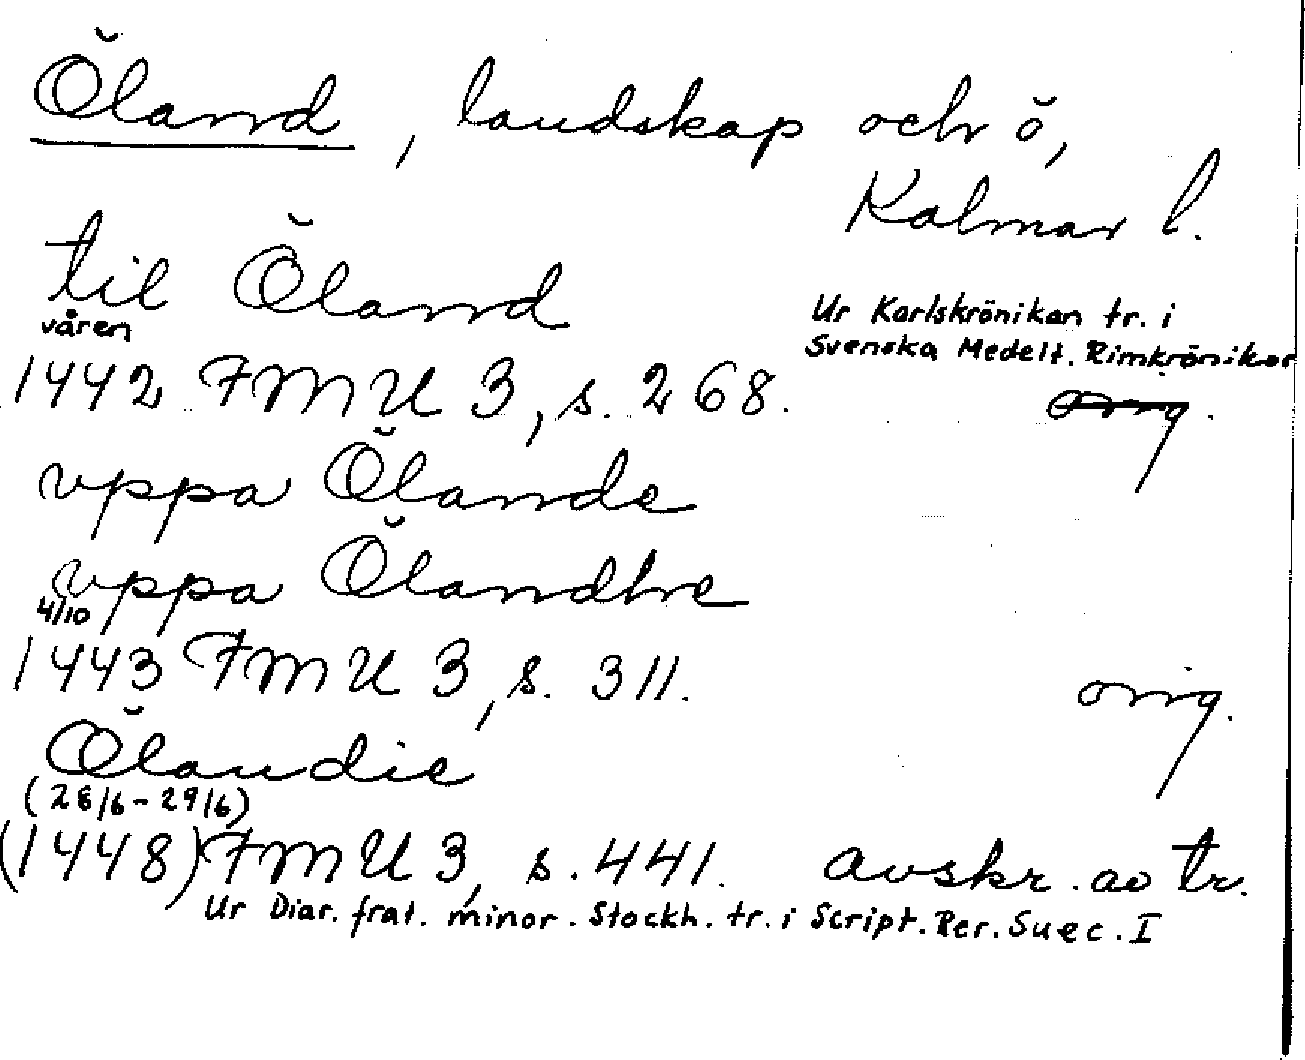 Öland, landskap och ö,
Kalmar l.
til Öland
våren
1442 FMU 3, s. 268.
Ur Karlskrönikan tr. i
Svenska Medelt. Rimkrönikor
orig.
vppa Ölande
vppa Ölandhe
4/10
1443 FMU 3, s. 311.
orig.
Ölandie
(28/6-29/6)
(1448) FMU 3, s. 441. avskr. av tr.
Ur Diar. frat. minor. Stockh. tr. i Script. Rer. Suec. I